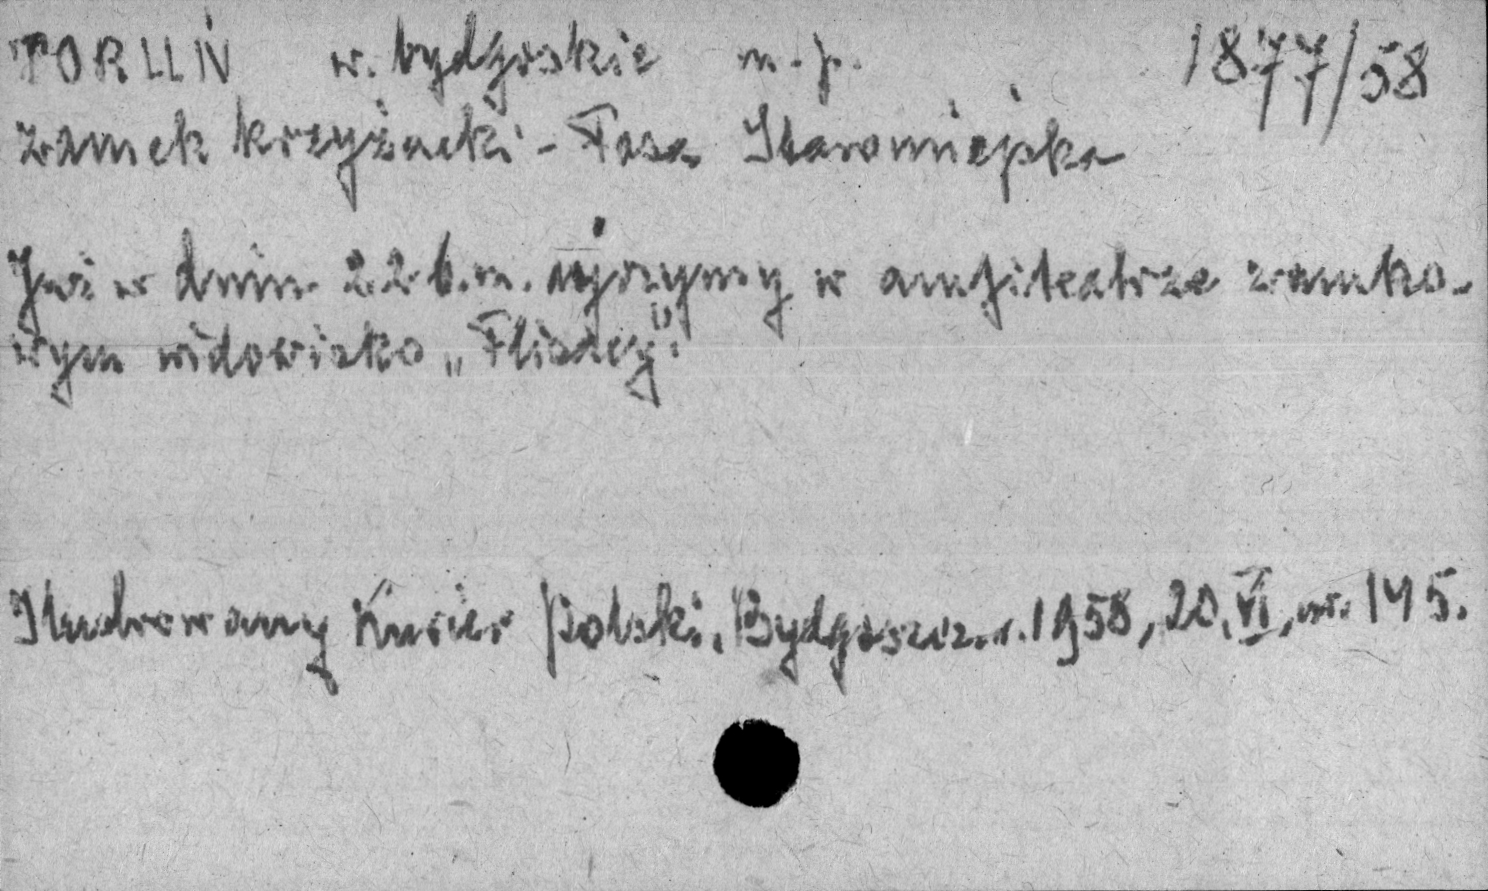 TORUŃ w. bydgoskie m.p. 1877/58
zamek krzyżacki - Fosa Staromiejska
Już w dniu 22 b.m. ujrzymy w amfiteatrze zamko-
wym widowisko „Flisacy".
Ilustrowany Kurier Polski, Bydgoszcz. r. 1958, 20.VI, nr. 145.